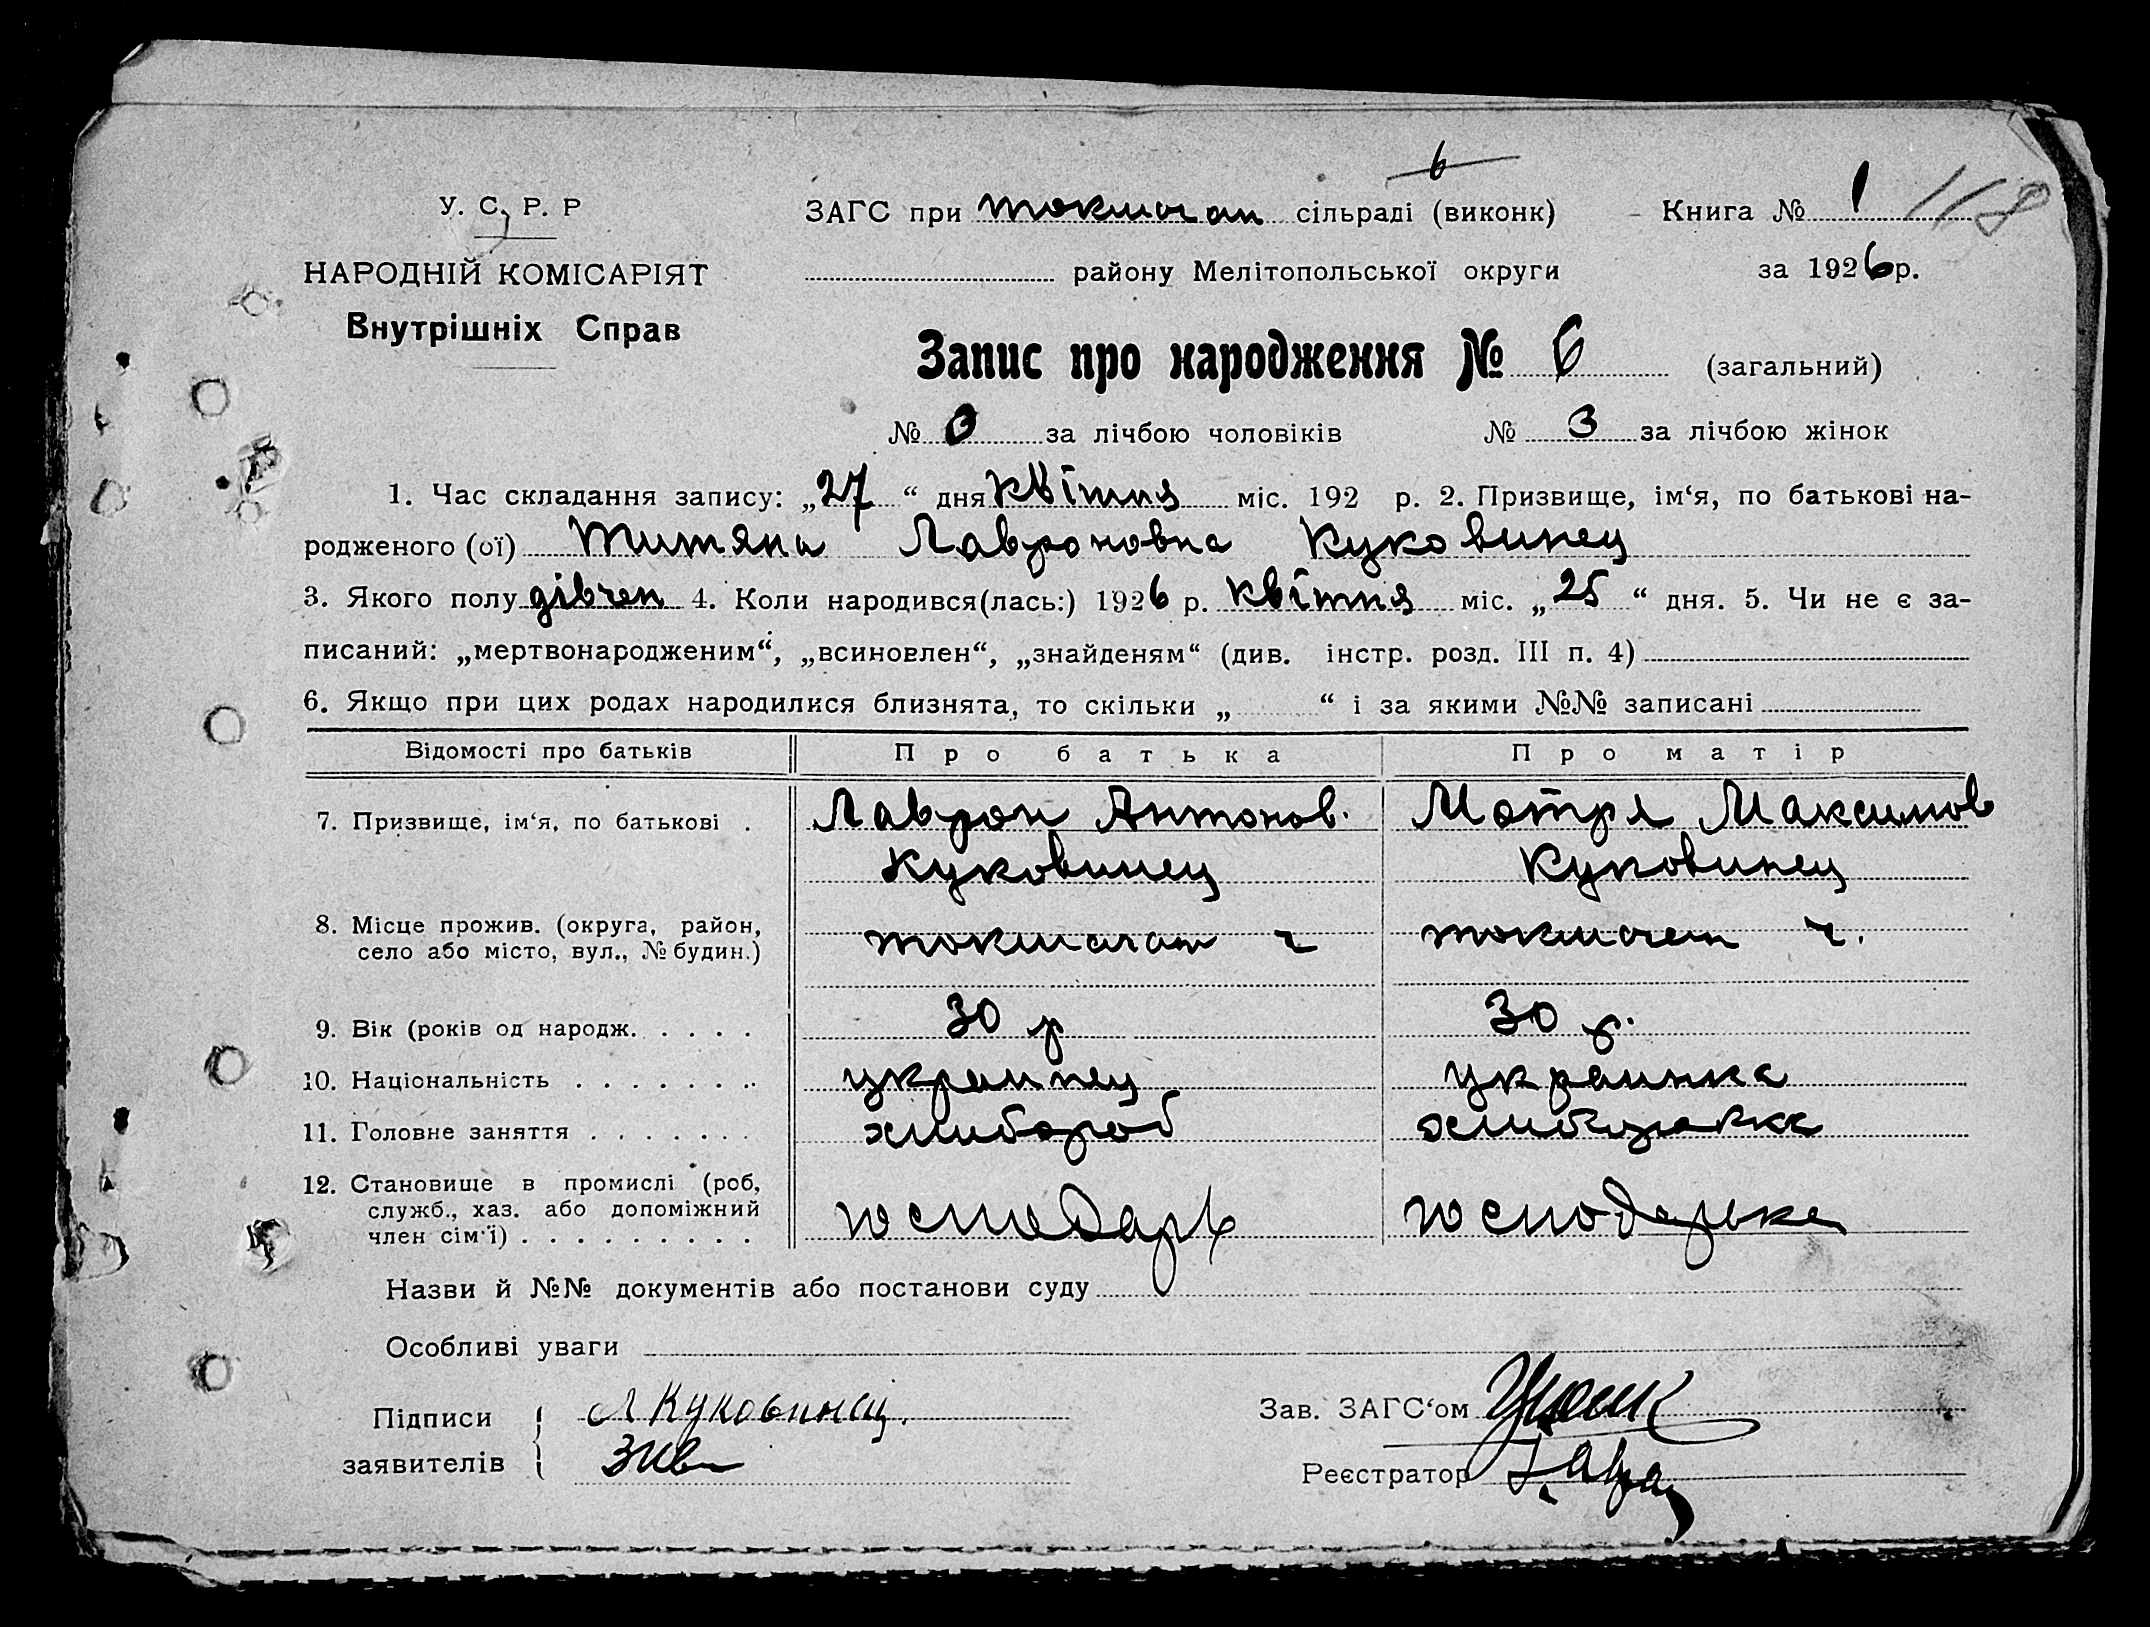 6
У. С. Р. Р
ЗАГС при сільраді (виконк) Книга № 1 118
НАРОДНІЙ КОМІСАРІЯТ
району Мелітопольської округи за 1926 р.
Внутрішніх Справ
Запис про народження № 6 (загальний)
№ за лічбою чоловіків № 3 за лічбою жінок
1. Час складання запису: „27“ дня квітня міс. 192 р. 2. Призвище, ім‘я, по батькові на-
родженого (ої) Титяна Лавроновна Куковинец
3. Якого полу дівчен 4. Коли народився(лась:) 1926 р. квітня міс. „25“ дня. 5. Чи не є за-
писаний: „мертвонародженим“, „всиновлен“, „знайденям“ (див. інстр. розд. III п. 4)
6. Якщо при цих родах народилися близнята, то скільки „ “ і за якими №№ записані
Відомості про батьків Про батька Про матір
7. Призвище, ім‘я, по батькові . Лаврон Антонов. Мотря Максимов
Куковинец Куковинец
8. Місце прожив. (округа, район,
село або місто, вул., № будин.)
9. Вік (років од народж. . . . . 30 р 30 р.
10. Національність . . . . . . . украинец украинка
11. Головне заняття . . . . . . . хлибороб
12. Становище в промислі (роб,
служб., хаз. або допоміжний
член сім‘ї) . . . . . . . . . господарь господарька
Назви й №№ документів або постанови суду
Особливі уваги
Підписи Л Куковинец. Зав. ЗАГС‘ом
заявителів Реєстратор